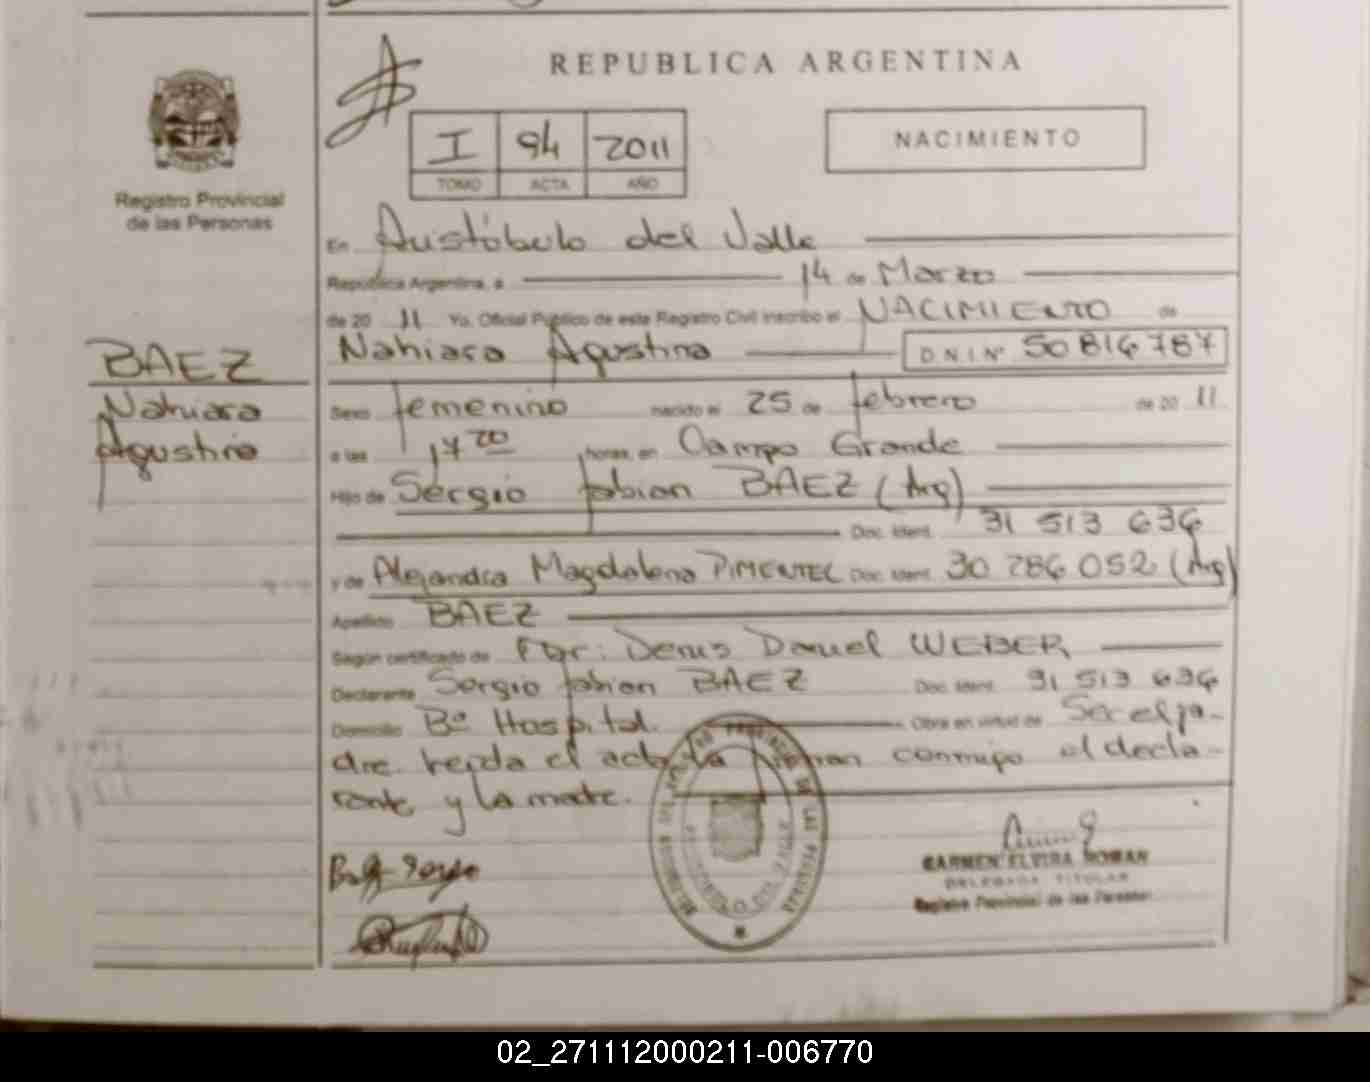 REPUBLICA ARGENTINA
I 94 2011
TOMO ACTA AÑO
NACIMIENTO
Registro Provincial
de las Personas
En Aristóbulo del Valle
República Argentina, a 14 de Marzo
de 20 11 Yo, Oficial Público de este Registro Civil inscribo el NACIMIENTO de
Nahiara Agustina D.N.I. Nº 50 816 787
BAEZ
Nahiara
Agustina
Sexo femenino nacido el 25 de febrero de 20 11
a las 17 20 horas, en Campo Grande
Hijo de Sergio fabian BAEZ (Arg)
Doc. Ident. 31 513 636
y de Alejandra Magdalena PIMENTEL Doc. Ident. 30 786 052 (Arg)
Apellido BAEZ
Según certificado de Denis Daniel WEBER
Declarante Sergio fabian BAEZ Doc. Ident. 31 513 636
Domicilio Bº Hospital. Obra en virtud de Ser el pa-
dre. leida el acta la firman conmigo el decla-
rante y la madre.
CARMEN ELVIRA ROMAN
DELEGADA TITULAR
Registro Provincial de las Personas
02_271112000211-006770